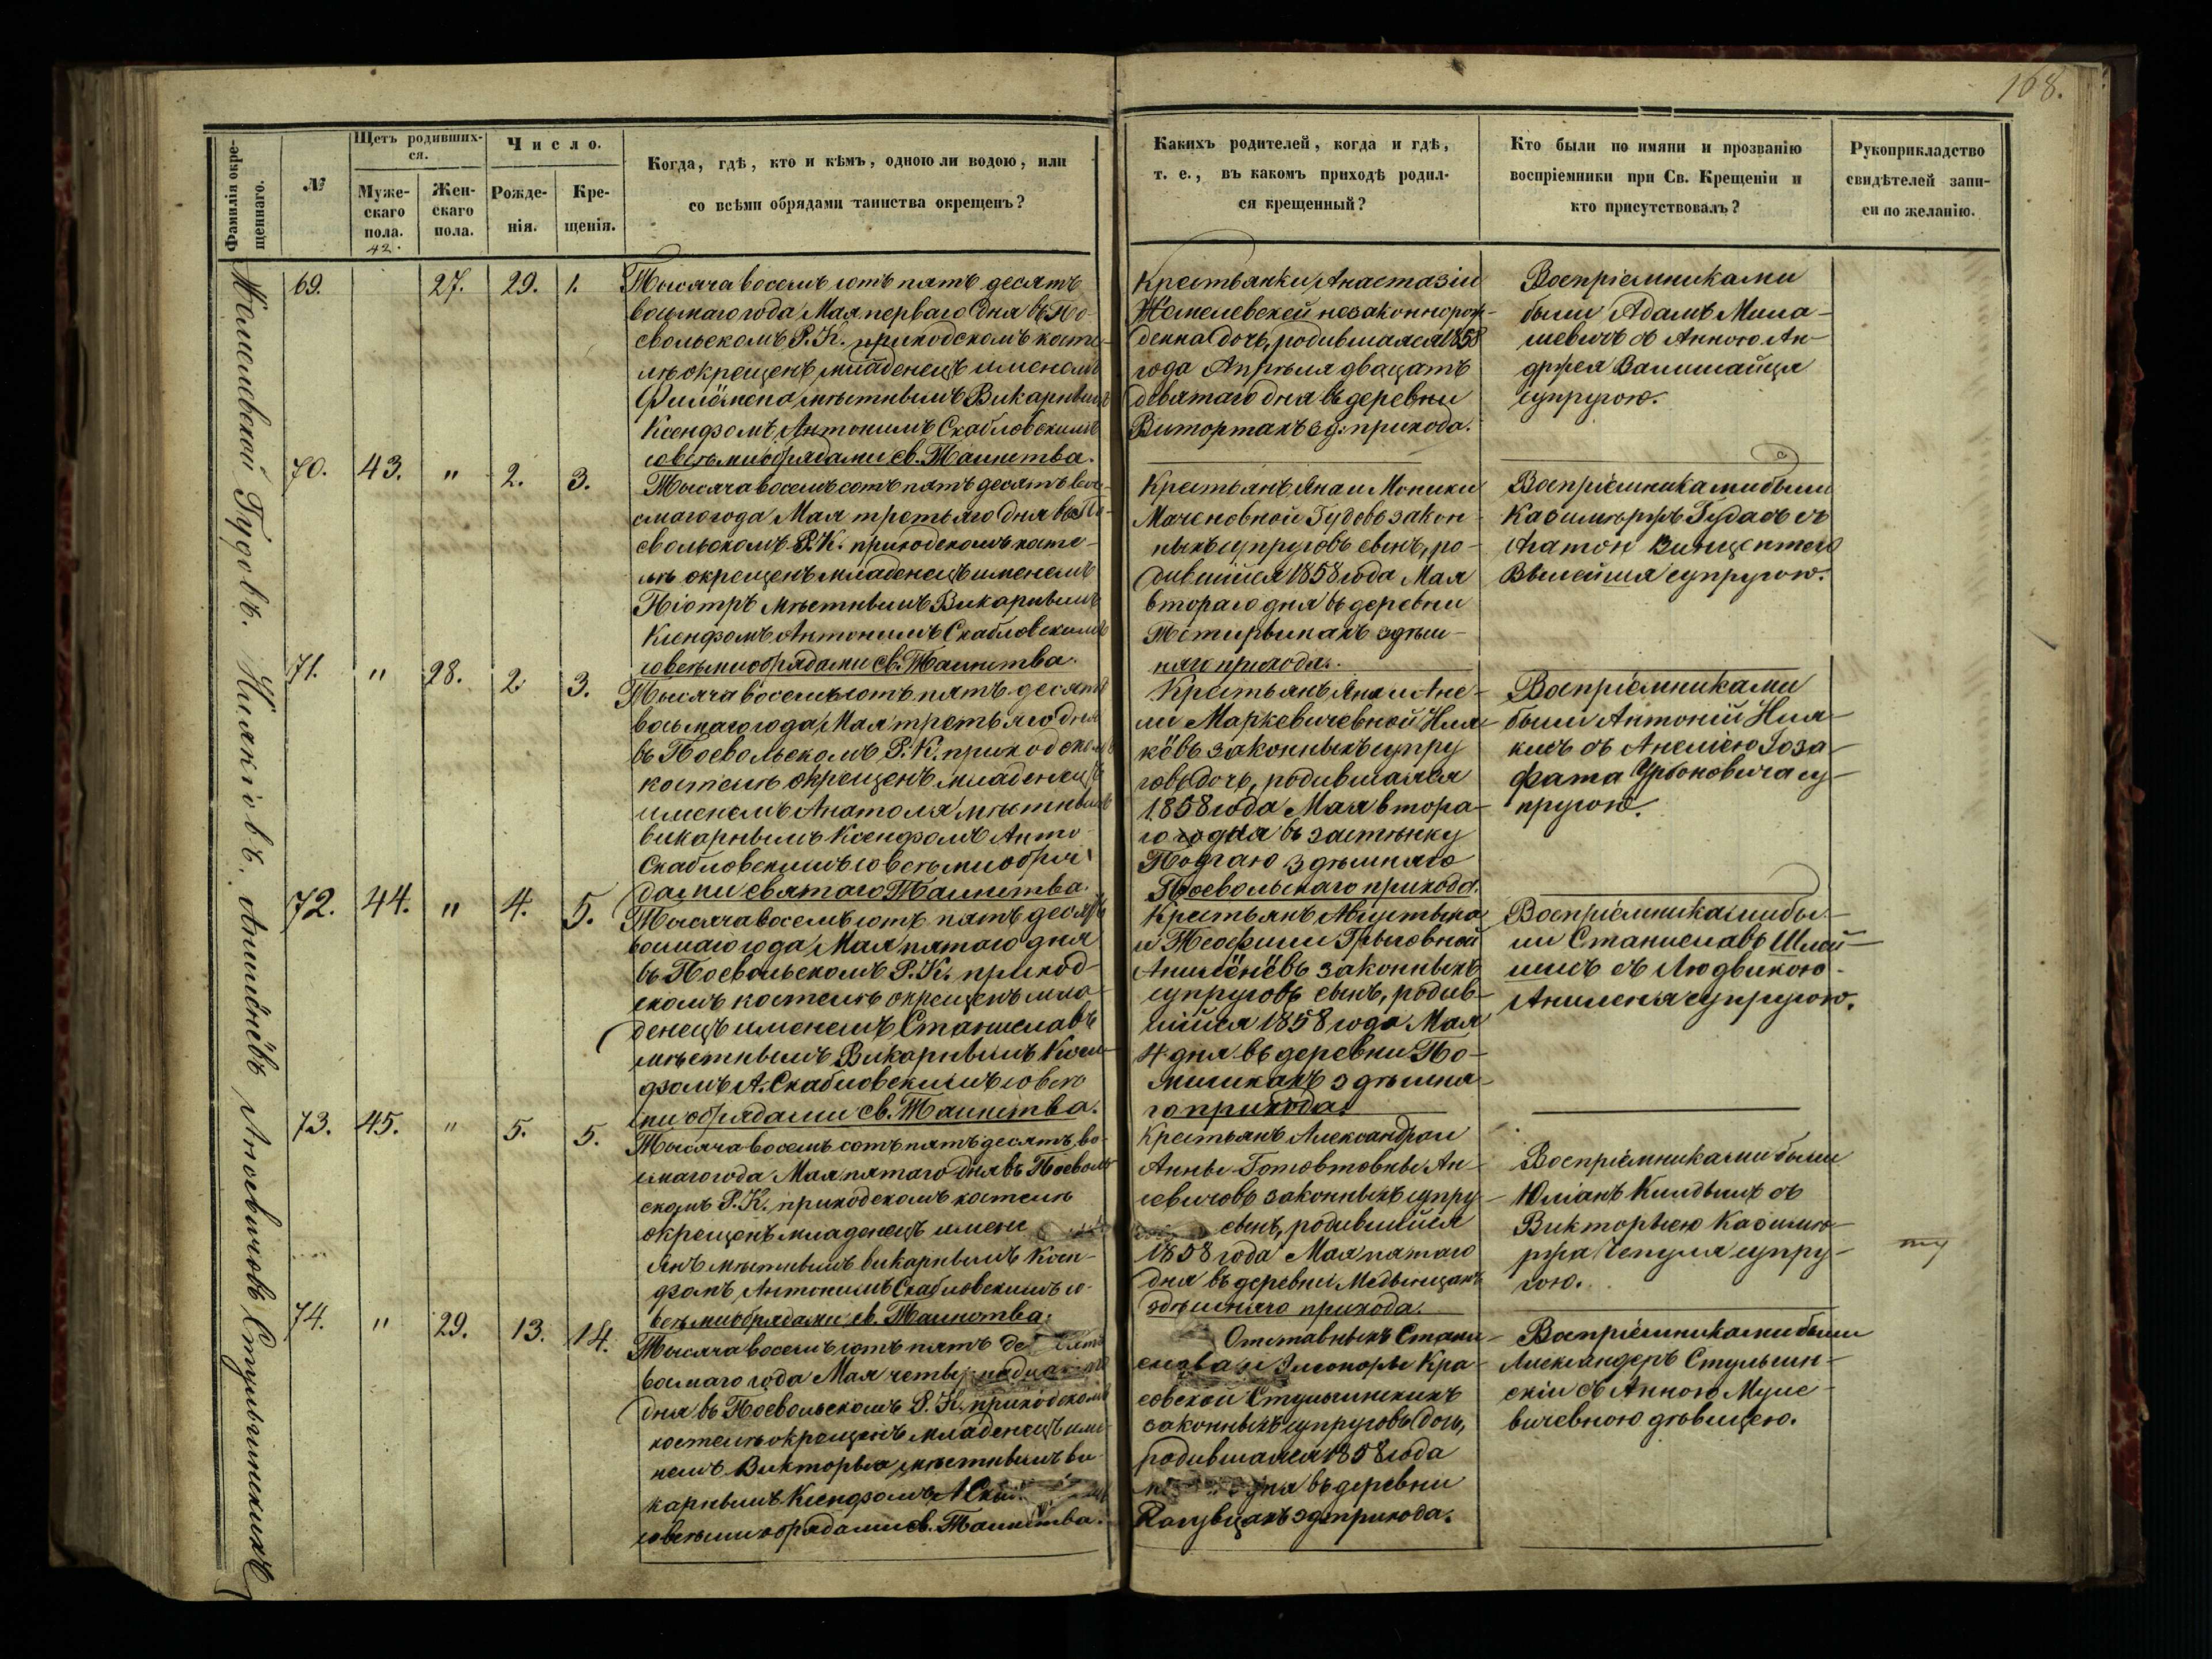 168.
Фамилія окрещеннаго.
№
Щетъ родившихся.
Мужескаго пола.
42.
Женскаго пола.
Число.
Рожденія.
Крещенія.
Когда, гдѣ, кто и кѣмъ, одною ли водою, или
со всѣми обрядами таинства окрещенъ?
Какихъ родителей, когда и гдѣ,
т. е., въ какомъ приходѣ родил-
ся крещенный?
Кто были по имяни и прозванію
воспріемники при Св. Крещеніи и
кто присутствовалъ?
Рукоприкладство
свидѣтелей запи-
си по желанію.
69.
27.
29.
1.
Тысяча восемь сотъ пять десятъ
восьмаго года Мая перваго дня въ По-
свольскомъ Р. К. приходскомъ косте-
лѣ окрещенъ младенецъ именемъ
Филёмена мѣстнымъ Викарнымъ
Ксендзомъ Антонимъ Скабловскимъ
со всѣми обрядами св. Таинства.
Крестьянки Анастазіи
незаконнорож-
денна дочь, родившаяся 1858
года Апрѣля двацать
девятаго дня въ деревни
зд: прихода.
Воспріемниками
были Адамъ Мила-
шевичъ съ Анною Ан-
држея
супругою.
70.
43.
"
2.
3.
Тысяча восемь сотъ пять десятъ вось-
смаго года Мая третьяго дня въ По-
свольскомъ Р. К. приходскомъ косте-
лѣ окрещенъ младенецъ именемъ
Піотръ мѣстнымъ Викарнымъ
Ксендзомъ Антонимъ Скабловскимъ
со всѣми обрядами св. Таинства.
Крестьянъ Яна и Моники
Гудовъ закон-
ныхъ супруговъ сынъ, ро-
дившійся 1858 года Мая
втораго дня въ деревни
здѣш-
няго прихода.
Воспріемниками были
Казимѣржъ Гудасъ съ
Винцентего
супругою.
71.
"
28.
2.
3.
Тысяча восемь сотъ пять десятъ
восьмаго года Мая третьяго дня
въ Посвольскомъ Р. К. приходскомъ
костелѣ окрещенъ младенецъ
именемъ Анатоля мѣстнымъ
викарнымъ Ксендзомъ Анто-
Скабловскимъ со всѣми обря-
дами святаго Таинства.
Крестьянъ Яна и Ане-
ли Маркевичевной Ния-
кёвъ законныхъ супру
говъ дочь, родившаяся
1858 года Мая втора-
го дня въ застѣнку
Подгаю здѣшняго
Посвольскаго прихода.
Воспріемниками
были Антоній Ния-
кисъ съ Анелію Іоза-
фата Урбоновича су-
пругою.
72.
44.
"
4.
5.
Тысяча восемь сотъ пять десятъ
восмаго года Мая пятаго дня
въ Посвольскомъ Р. К. приход-
скомъ костелѣ окрещенъ мла-
денецъ именемъ Станиславъ
мѣстнымъ Викарнымъ Ксен-
дзомъ А. Скабловскимъ со всѣ-
ми обрядами св. Таинства.
Крестьянъ Августына
и Теофили
законныхъ
супруговъ сынъ, родив-
шійся 1858 года Мая
4 дня въ деревни По-
здѣшня-
го прихода.
Воспріемниками бы-
ли Станиславъ
съ Людвикою
супругою.
73.
45.
"
5.
5.
Тысяча восемь сотъ пять десятъ во-
смаго года Мая пятаго дня въ Посволь
скомъ Р. К. приходскомъ костелѣ
окрещенъ младенецъ имене
Янъ мѣстнымъ викарнымъ Ксен-
дзомъ Антонимъ Скабловскимъ со
всѣми обрядами св. Таинства.
Крестьянъ Александра и
Анны Готовтовны Ян-
севичовъ законныхъ супру-
сынъ, родившійся
1858 года Мая пятаго
дня въ деревни
здѣшняго прихода.
Воспріемниками были
Юліанъ съ
Викторыею Казимѣ-
ржа Чепуля супру-
гою.
74.
"
29.
13.
14.
Тысяча восемь сотъ пять де
восмаго года Мая
дня въ Посвольскомъ Р. К. приходскомъ
костелѣ окрещенъ младенецъ име-
немъ Викторыа мѣстнымъ ви-
карнымъ Ксендзомъ А
со всѣми обрядами св. Таинства.
Отставныхъ Стани-
слава и Элеоноры Кра-
совской Стульгинскихъ
законныхъ супруговъ дочь,
родившаяся 1858 года
дня въ деревни
зд: прихода.
Воспріемниками были
Александеръ Стульгин-
скій съ Анною
дѣвицею.